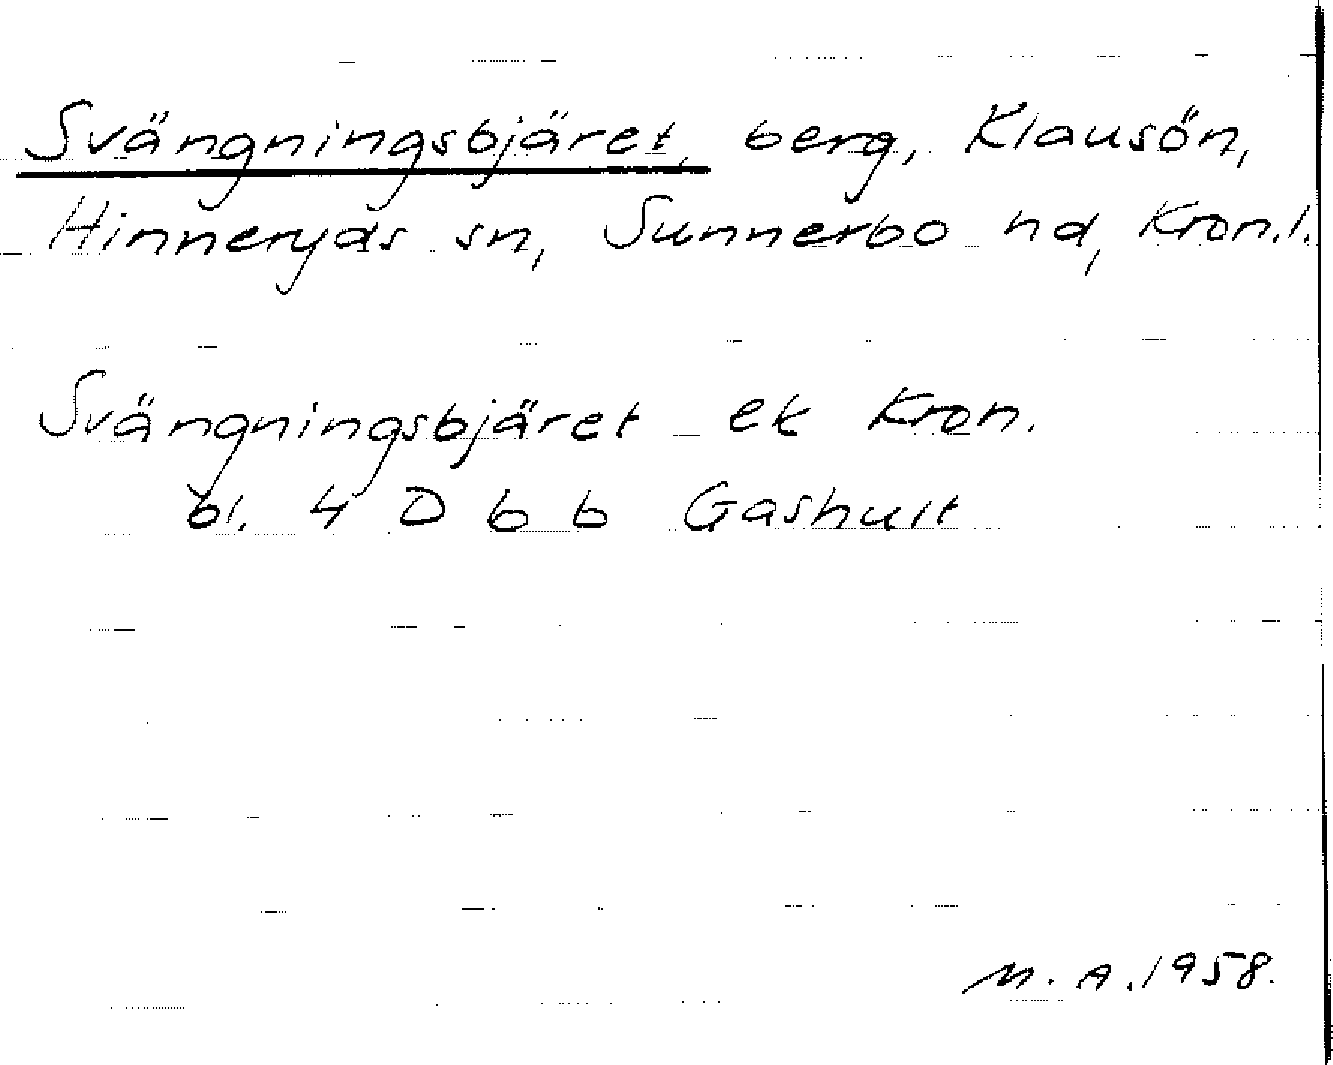 Svängningsbjäret, berg, Klausön,
Hinneryds sn, Sunnerbo hd, Kron.l.
Svängningsbjäret ek Kron.
bl. 4 D b b Gashult
M.A. 1958.